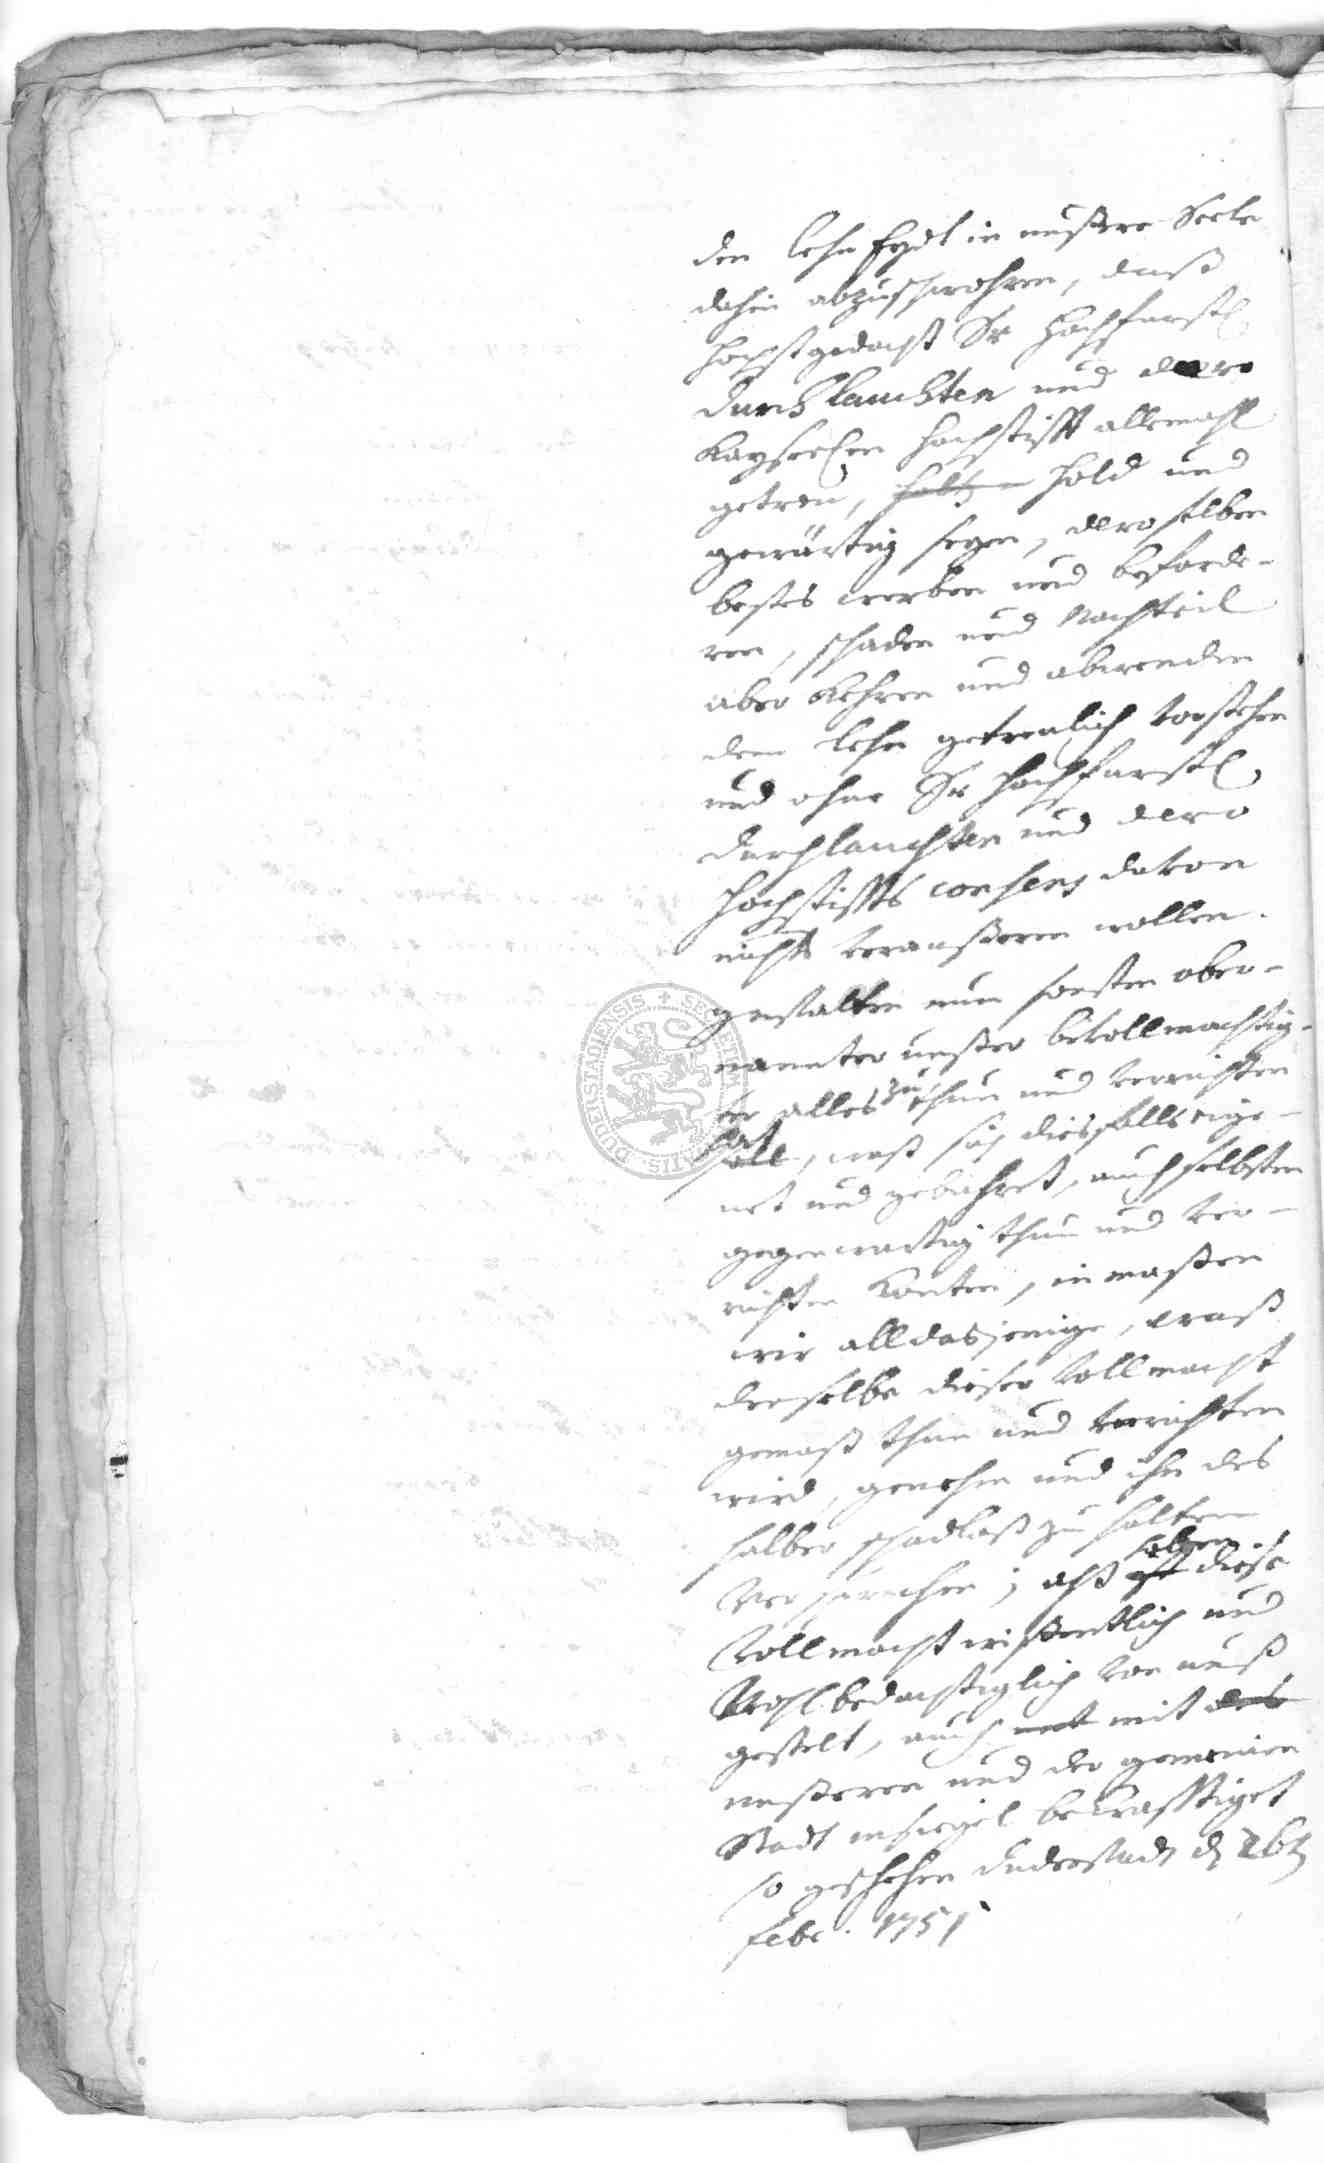 den Lehn Eydt in unßere Seele
dahin abzuschwohren, daß
hochstgedacht Sr. Hochfürstl.
durchlauchten und dero
Kayserlen Hochstifft allemahl
getreu, hold und
gewärtig seyn, deroselben
bestes werben und beforde-
ren, schaden und Nachtheil
aber kehren und abwenden
dem Lehn getreulich vorstehen
und ohne Sr. Hochfürstl.
durchlauchten und dero
Hochstiffts consens davon
nichts veraußeren wollen.
gestalten nun sonsten ober-
nannter unßer bevollmachtig-
er alles zu thun und verrichten
hat, waß sich diesfalls eige-
net und gebühret, auch selbsten
gegenwartig thun und ver-
richten konten, inmaßen
wir alldasjenige, waß
derselbe dieser Vollmacht
gemäß thun und verrichten
wird, genehm und ihn des
halber schadloß zu halten
Versprechen; alß haben diese
Vollmacht wißentlich und
Wohlbedachtiglich von unß
gestelt, auch mit
unßeren und der gemeinen
Stadt insiegel bekrafftiget
so geschehen duderstadt d 26t
Febr. 1751
SECRETUM
DUDERSTADIENSIS